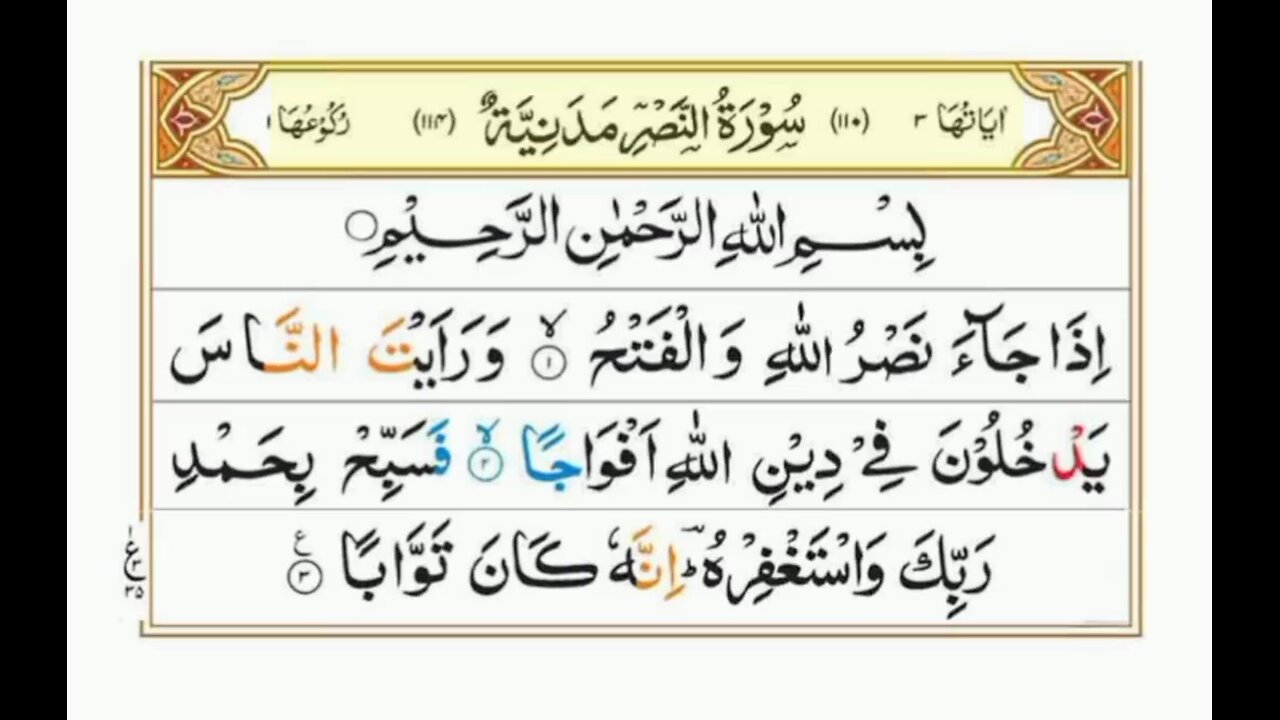 اٰیَاتُهَا ٣ (١١٠) سُوْرَةُ النَّصْرِ مَدَنِيَّةٌ (١١٤) رُكُوْعُهَا ١
بِسْمِ اللهِ الرَّحْمٰنِ الرَّحِيْمِ
اِذَا جَآءَ نَصْرُ اللهِ وَ الْفَتْحُ ۙ ١ وَ رَاَيْتَ النَّاسَ
يَدْخُلُوْنَ فِيْ دِيْنِ اللهِ اَفْوَاجًا ۙ ٢ فَسَبِّحْ بِحَمْدِ
رَبِّكَ وَ اسْتَغْفِرْهُ ؕ اِنَّهٗ كَانَ تَوَّابًا ٣ ع
١ ع ٣ ٣٥